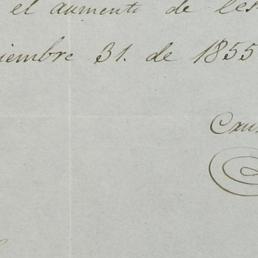 el aumento de
iembre 31. de 1855